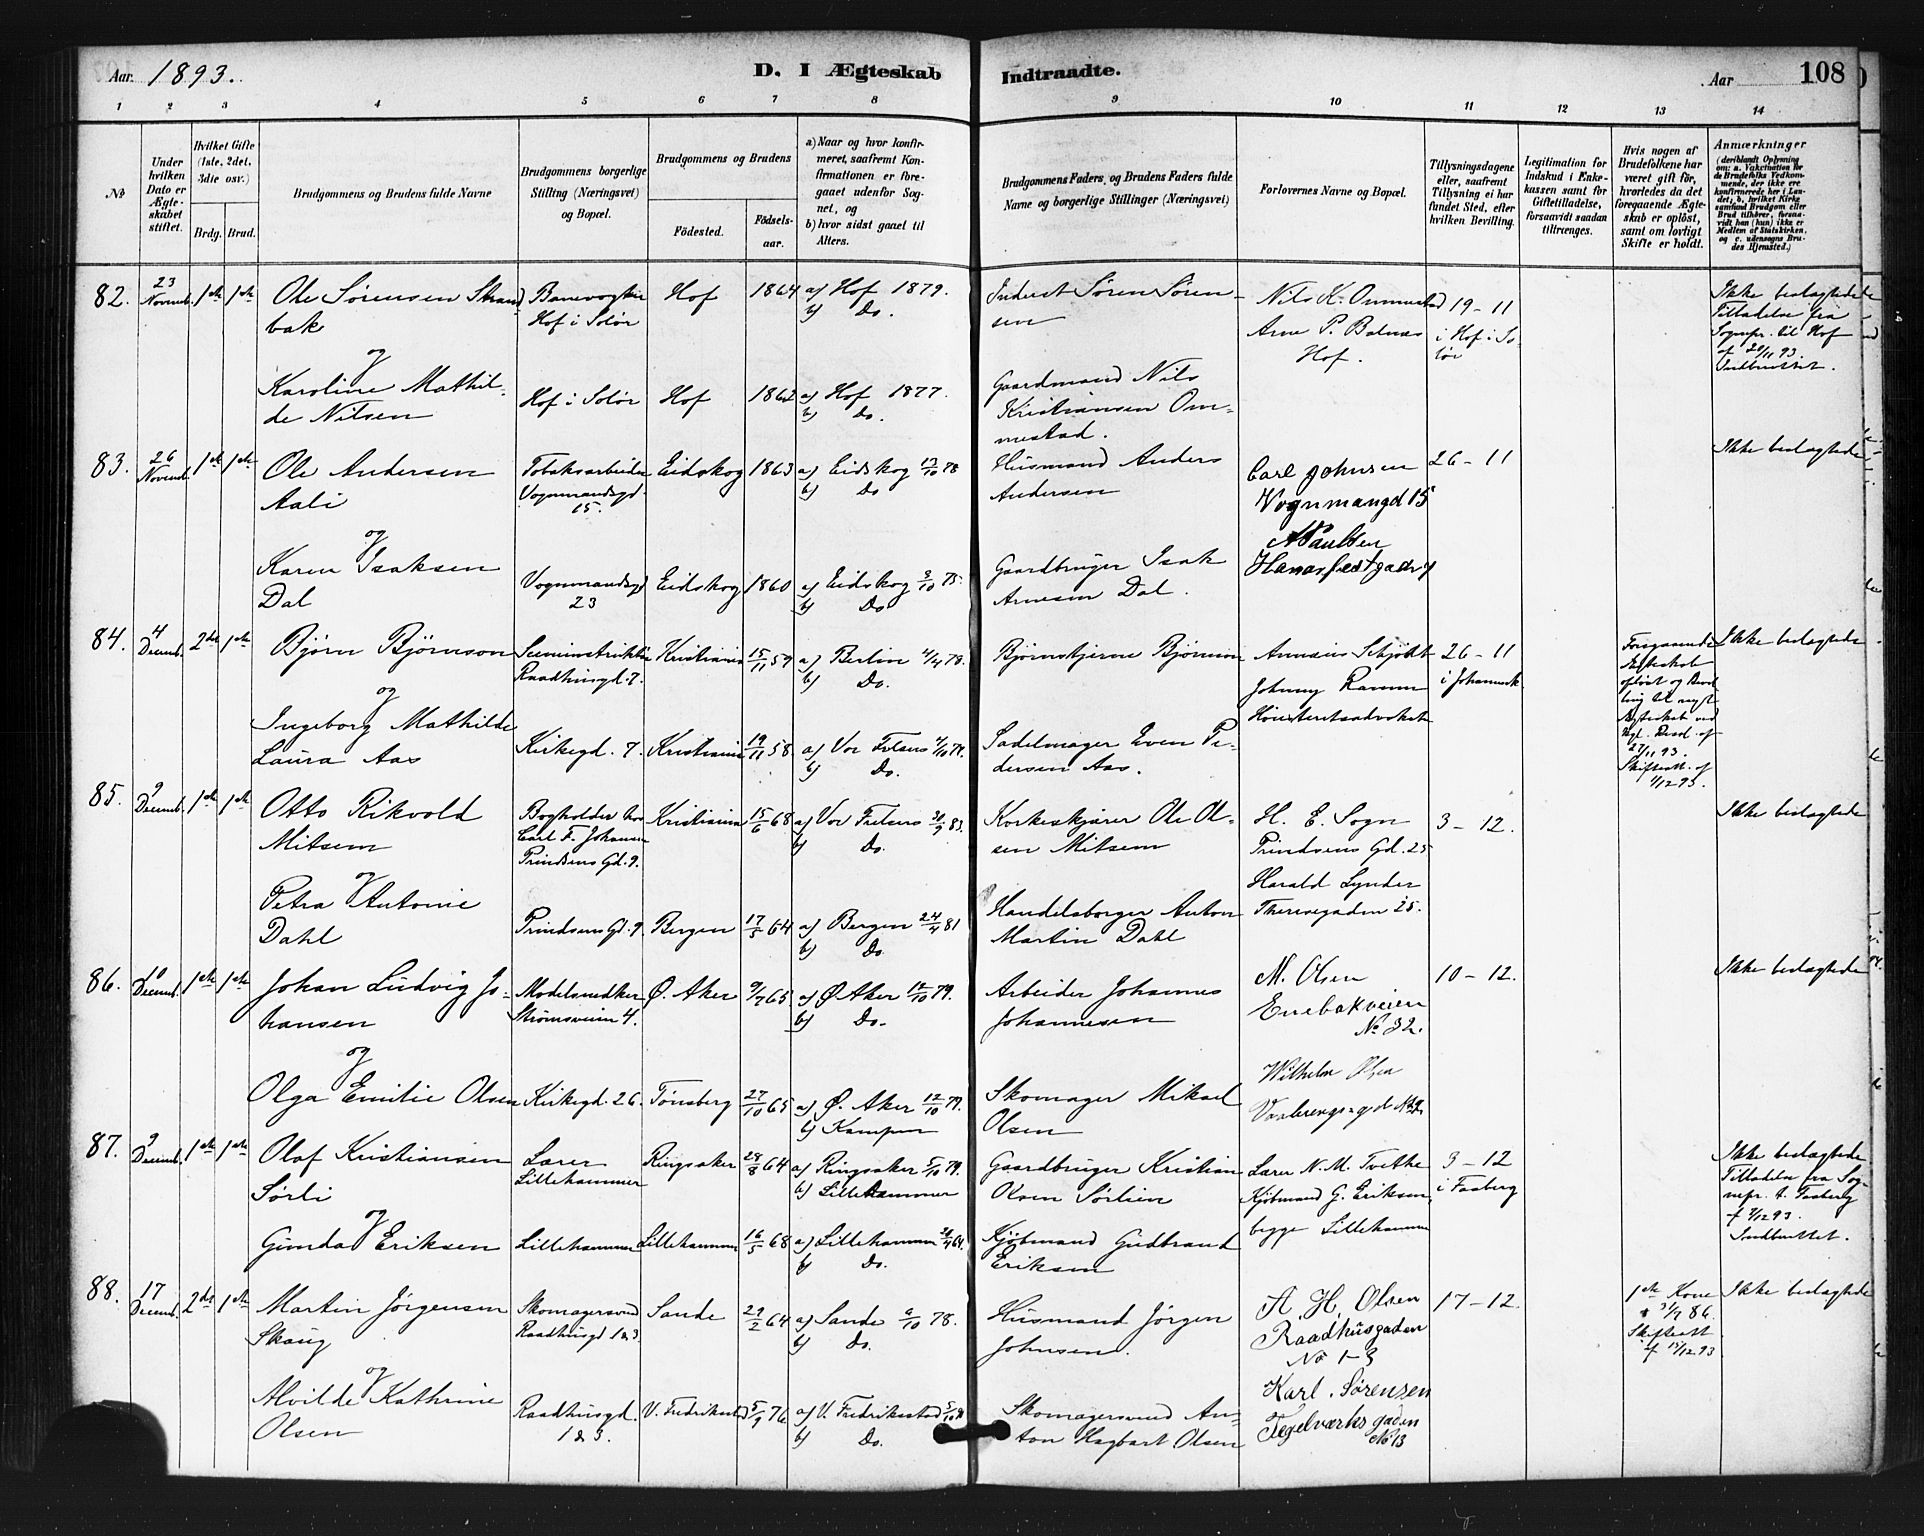 Aar. 1893.
D. I Ægteskab
Indtraadte.
Aar 108
1 2 3 4 5 6 7 8 9 10 11 12 13 14
№
Under hvilken Dato er Ægteskabet stiftet.
Hvilket Gifte (1ste, 2det, 3die osv.)
Brdg. Brud.
Brudgommens og Brudens fulde Navne
Brudgommens borgerlige Stilling (Næringsvei) og Bopæl.
Brudgommens og Brudens
Fødested.
Fødselsaar.
a) Naar og hvor konfirmeret, saafremt Konfirmationen er foregaaet udenfor Sognet, og
b) hvor sidst gaaet til Alters.
Brudgommens Faders, og Brudens Faders fulde Navne og borgerlige Stillinger (Næringsvei)
Forlovernes Navne og Bopæl.
Tillysningsdagene eller, saafremt Tillysning ei har fundet Sted, efter hvilken Bevilling.
Legitimation for Indskud i Enkekassen samt for Giftetilladelse, forsaavidt saadan tiltrænges.
Hvis nogen af Brudefolkene har været gift før, hvorledes da det foregaaende Ægteskab er opløst, samt om lovligt Skifte er holdt.
Anmærkninger
82. 23 Novemb. 1ste 1ste
Ole Sørensen Strandbak
Banevogter Hof i Solør
Hof 1864 a) Hof 1879. b) Do.
Inderst Søren Sørensen
Nils K. Ommestad
Arne P. Balnes
Hof.
19-11 i Hof i Solør
Ikke beslægtede
Tilladelse fra Sognepr. til Hof af 20/11 93.
Indbrettet.
og
Karoline Mathilde Nilsen
Hof i Solør Hof 1862 a) Hof 1877. b) Do.
Gaardmand Nils Kristiansen Ommestad.
83. 26 Novemb. 1ste 1ste
Ole Andersen Aali
Tobaksarbeider Vognmandsgd. 15.
Eidskog 1863 a) Eidskog 13/10 78 b) Do
Husmand Anders Andersen
Carl Johnsen
Vognmangd 15
Hamerfestgaden 7
26-11
Ikke beslægtede
og
Karen Isaksen Dal
Vognmandsgd 23
Eidskog 1860 a) Eidskog 3/10 75. b) Do
Gaardbruger Isak Arnesen Dal.
84. 4 Decemb. 2det 1ste
Bjørn Bjørnson
Sceneinstruktør Raadhusgd. 7.
Kristiania 15/11 59 a) Berlin 4/4 78. b) Do.
Bjørnstjerne Bjørnson
Annæus Schjødt
Johnny Ramm
Høiesteretsadvokater
26-11 i Johannesk
Foregaaende Ægteskab opløst og Bevilling til nyt Ægteskab ved Kgl. Resol. af 27/11 93.
Skifteatt. af 1/12 93.
Ikke beslægtede
og
Ingeborg Mathilde Laura Aas
Kirkegd. 7. Kristiania 19/11 58 a) Vor Frelsers 4/10 74. b) Do.
Sadelmager Even Pedersen Aas.
85. 9 Decemb. 1ste 1ste
Otto Rikvold Mitsem
Bogholder hos Carl F. Johansen Prindsens Gd. 9.
Kristiania 15/6 68 a) Vor Frelsers 30/9 83. b) Do.
Korkeskjærer Ole Olsen Mitsem
H. E. Sogn
Prindsens Gd. 25
Harald Lynder
Theresegaden 25.
3-12.
Ikke beslægtede
og
Petra Antonie Dahl
Prindsens Gd. 9 Bergen 17/5 64 a) Bergen 24/4 81 b) Do.
Handelsborger Anton Martin Dahl
86. 10 Decemb. 1ste 1ste
Johan Ludvig Johansen
Modelsnedker Strømsveien 4.
Ø. Aker 9/7 65 a) Ø. Aker 12/10 79. b) Do.
Arbeider Johannes Johannesen
M. Olsen
Enebakveien No 32.
10-12.
Ikke beslægtede
og
Olga Emilie Olsen
Kirkegd. 26. Tønsberg 27/10 65 a) Ø. Aker 12/10 79. b) Kampen
Skomager Mikael Olsen
Wilhelm Olsen
87. 9 Decemb. 1ste 1ste
Olaf Kristiansen Sørli
Lærer Lillehammer
Ringsaker 28/8 64 a) Ringsaker 5/10 79. b) Lillehammer
Gaardbruger Kristian Olsen Sørlien
Lærer N. M. Tvethe
Kjøbmand G. Eriksen,
begge Lillehammer
3-12 i Faaberg
Ikke beslægtede
Tilladelse fra Sognepr. t. Faaberg
Indbrettet.
og
Gunda Eriksen
Lillehammer Lillehammer 16/5 68 a) Lillehammer b) Do.
Kjøbmand Gudbrand Eriksen
88. 17 Decemb. 2det 1ste
Martin Jørgensen Skaug
Skomagersvend Raadhusgd. 1 & 3
Sande 29/2 64 a) Sande 6/10 78. b) Do.
Husmand Jørgen Johnsen.
A. H. Olsen
Raadhusgaden No 1-3
17-12.
1ste Kone † 3/7 86.
Skifteatt.
Ikke beslægtede
og
Alvilde Kathrine Olsen
Raadhusgd. 1 & 3.
V. Fredrikstad 5/9 76 a) V. Fredrikstad b) Do.
Skomagersvend Anton Hagbart Olsen
Karl. Sørensen
Tegelværksgaden No 13